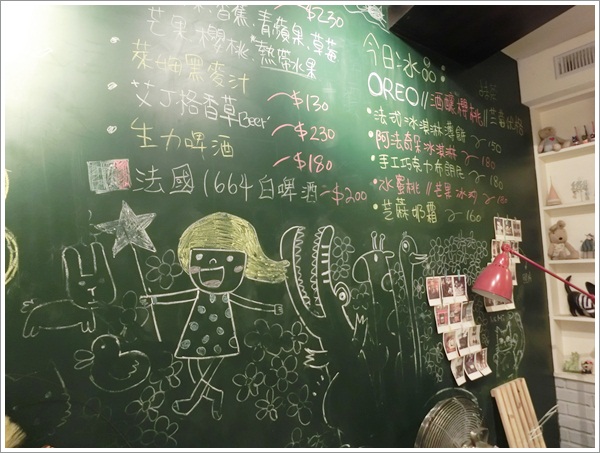 香蕉.青蘋果.草莓 ~$230
芒果.櫻桃.熱帶水果
萊姆黑麥汁 ~$130
艾丁格香草Beer ~$230
生力啤酒 ~$180
法國1664白啤酒~$200
今日冰品:
OREO//酒釀櫻桃//
法功冰淇淋薄餅~150
阿法奇朵冰淇淋~180
手工巧克力布朗尼~180
水蜜桃//芒果冰沙~130
芝蔴奶霜~160